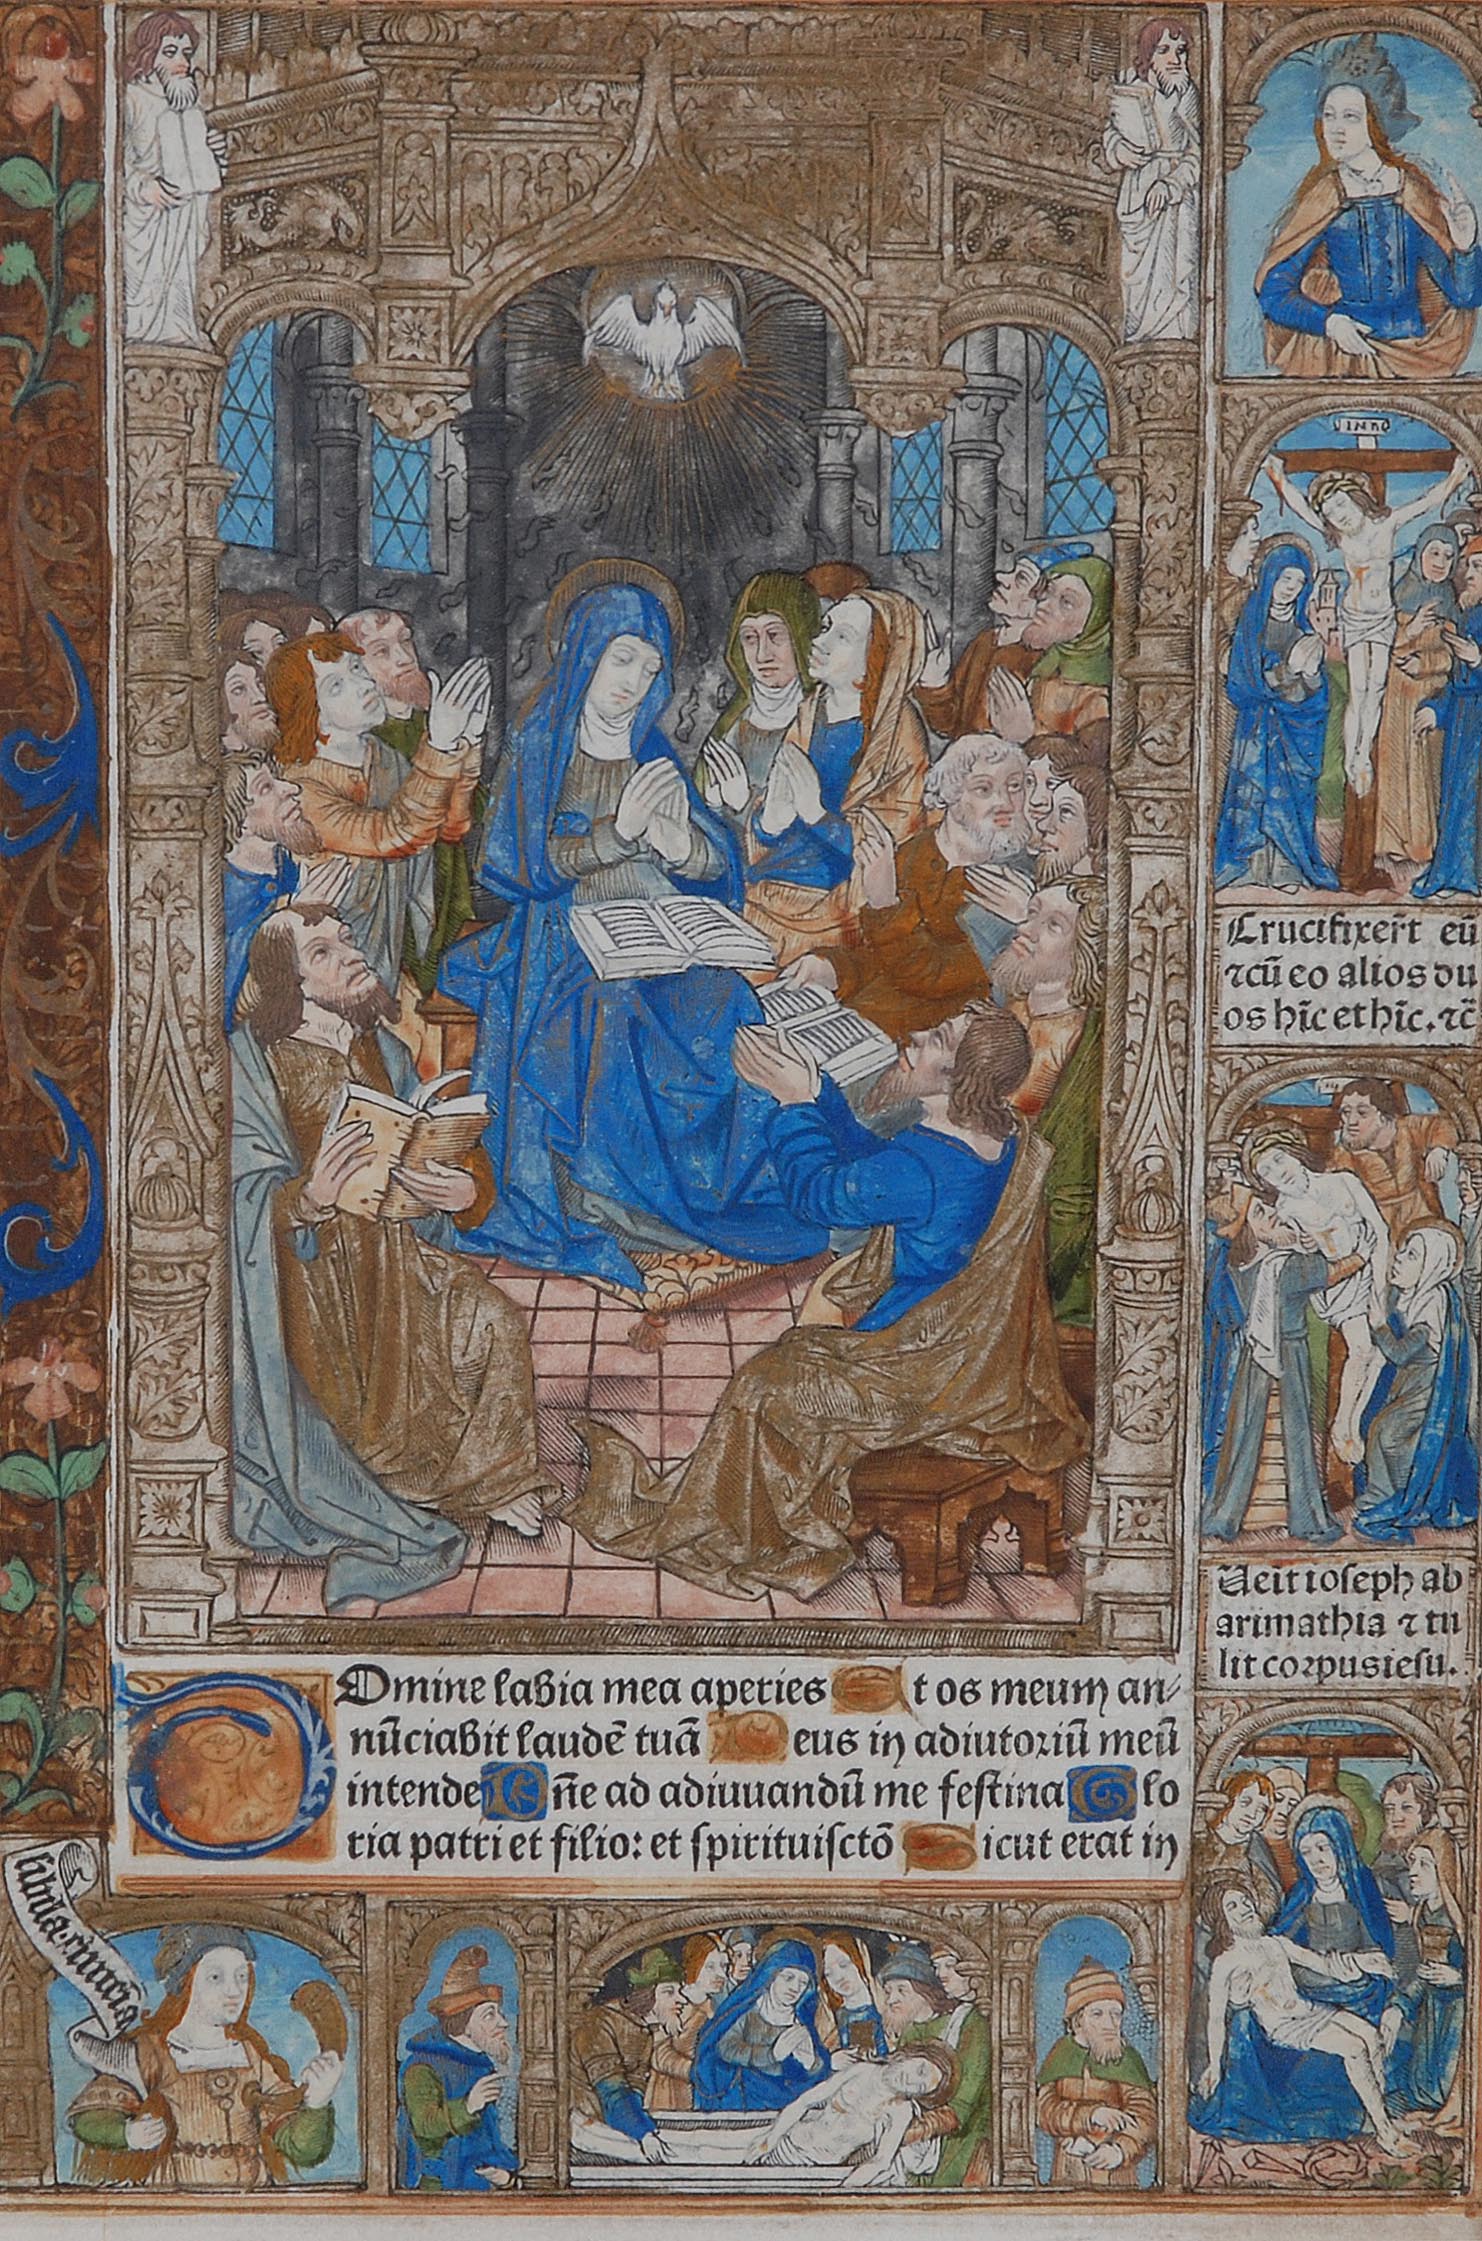 INRI
Crucifixer̃t eũ
⁊cũ eo alios du
os hĩc et hĩc. ⁊c̃
Ueit ioseph ab
arimathia ⁊ tu
lit corpus iesu.
Domine labia mea aperies Et os meum an⸗
nũciabit laudẽ tuã Deus in adiutoriũ meũ
intende Dñe ad adiuuandũ me festina Glo
ria patri et filio: et spiritui sctõ Sicut erat in